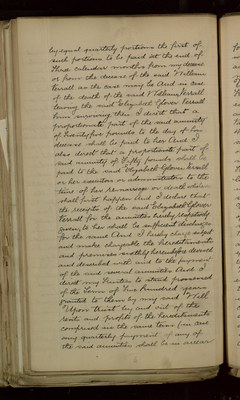 by equal quarterly portions the first of
such portions to be paid at the end of
Three calendar months from my decease
or from the decease of the said William
Terrell as the case may be And in case
of the death of the said William Terrell
leaving the said Elizabeth Glover Terrell
him surviving then I direct that a
proportionate part of the said annuity
of Twenty five pounds to the day of his
decease shall be paid to her And I
also direct that a proportionate part of
said annuity of Fifty pounds shall be
paid to the said Elizabeth Glover Terrell
or her executors or administrators to the
time of her remarriage or death which
shall first happen And I declare that
the receipts of the said Elizabeth Glover
Terrell for the annuities hereby respectively
given to her shall be sufficient discharges
for the same And I hereby charge subject
and make chargeable the hereditaments
and premises hereinbefore devised
and described with and to the payment
of the said several annuities And I
direct my Trustees to stand possessed
of the Term of Two hundred years
granted to them by my said Will
Upon trust by and out of the
rents and profits of the hereditaments
comprised in the same term in case
any quarterly payment of any of
the said annuities shall be in arrear